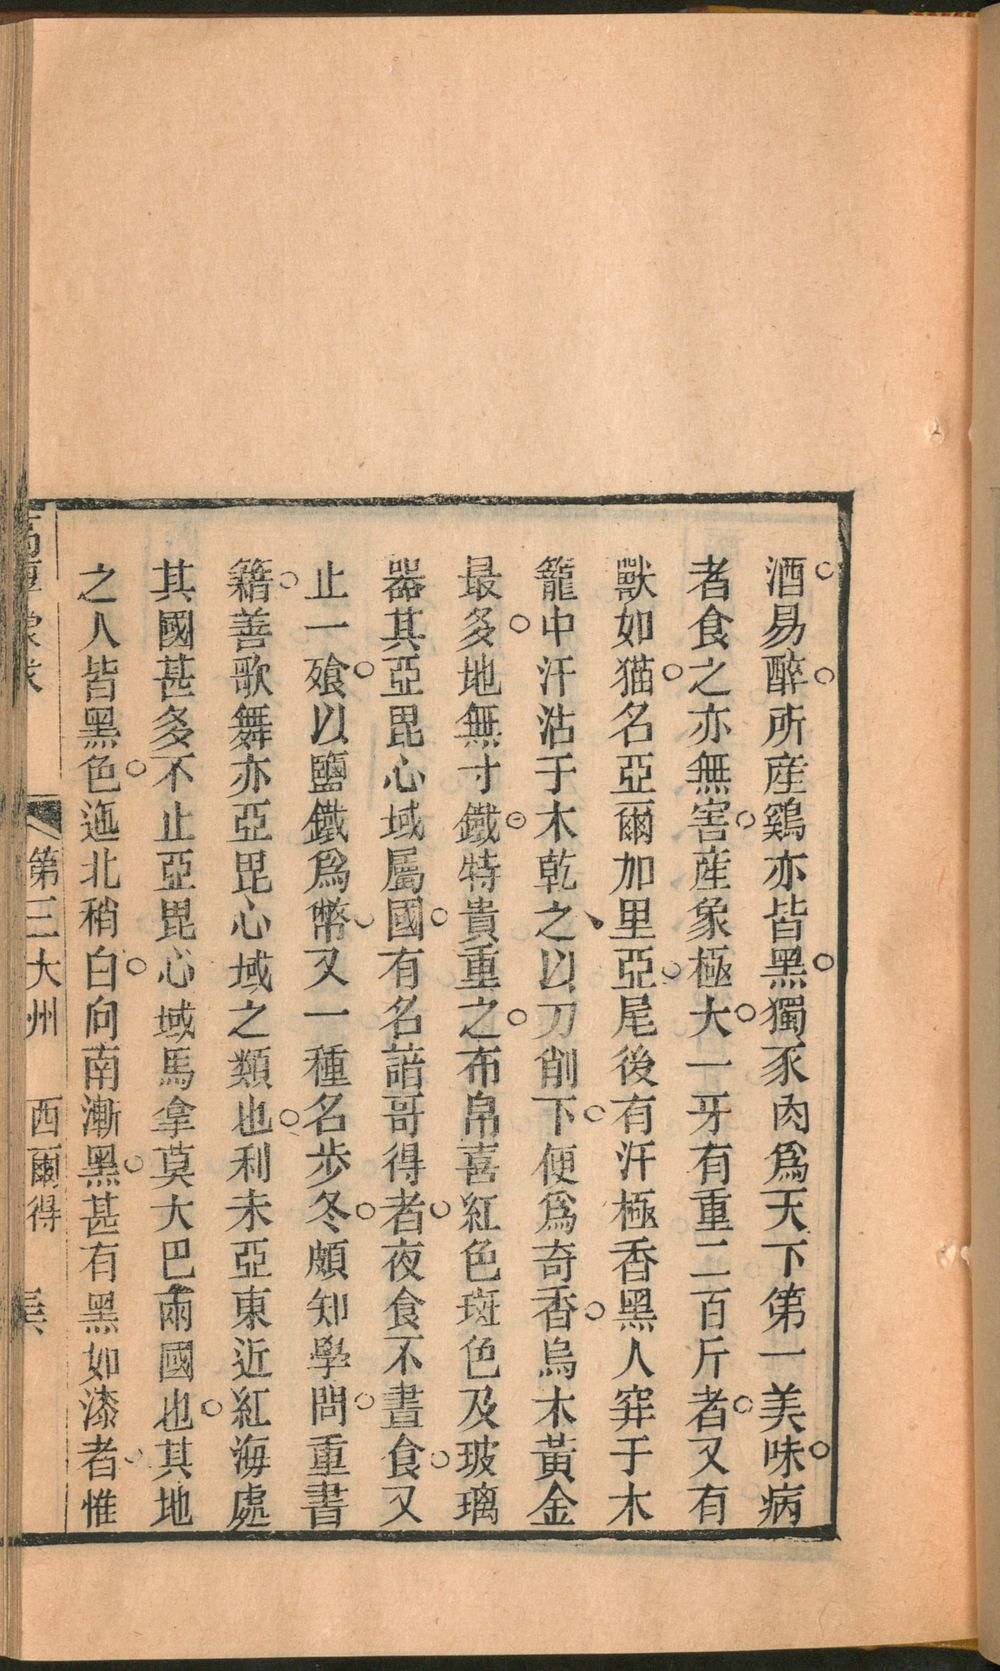 酒易醉所産鷄亦皆黑獨豕肉爲天下第一美味病
者食之亦無害産象極大一牙有重二百斤者又有
獸如猫名亞爾加里亞尾後有汗極香黑人穽于木
籠中汗沾于木乾之以刀削下便爲奇香烏木黃金
最多地無寸鐵特貴重之布帛喜紅色斑色及玻璃
器其亞毘心域屬國有名諳哥得者夜食不晝食又
止一飱以鹽鐵爲幣又一種名步冬頗知學問重書
籍善歌舞亦亞毘心域之類也利未亞東近紅海處
其國甚多不止亞毘心域馬拿莫大巴兩國也其地
之人皆黑色迤北稍白向南漸黑甚有黑如漆者惟
第三大州 西爾得